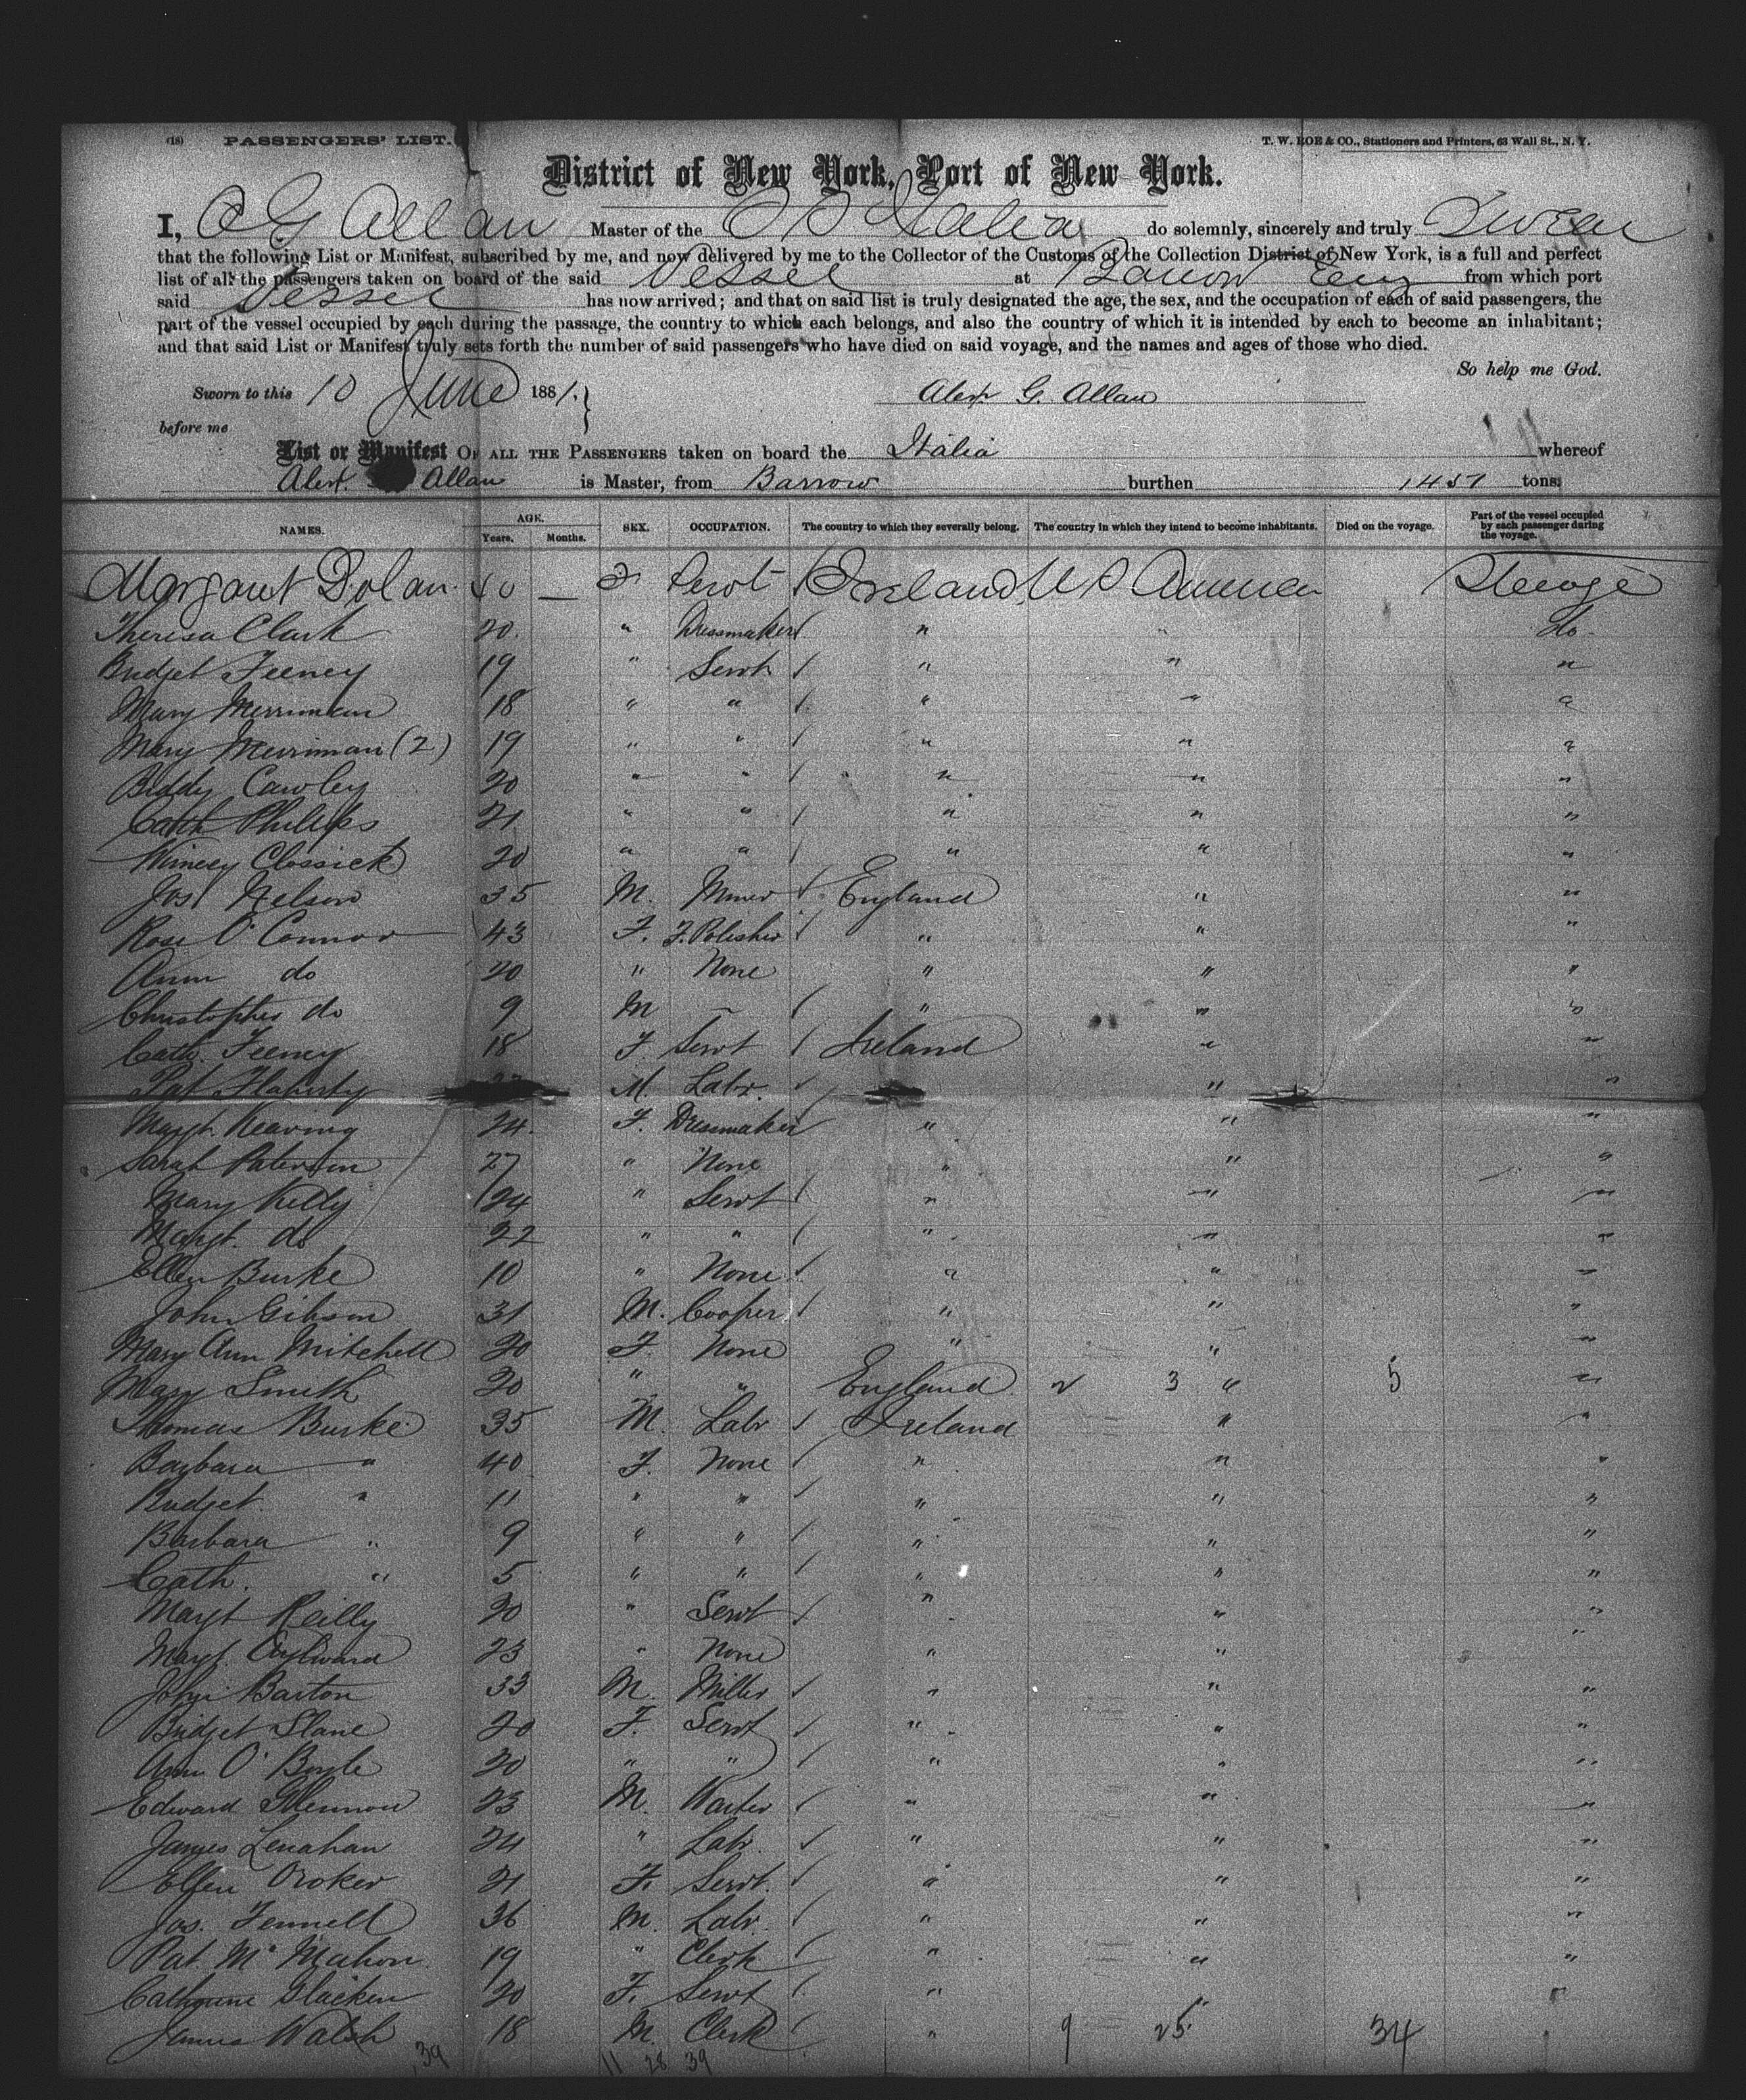 (18) PASSENGERS' LIST. T. W. ROE & CO., Stationers and Printers, 63 Wall St., N. Y.
District of New York, Port of New York.
I, A G Allan Master of the SS Italia do solemnly, sincerely and truly Swear
that the following List or Manifest, subscribed by me, and now delivered by me to the Collector of the Customs of the Collection District of New York, is a full and perfect
list of all the passengers taken on board of the said Vessel at Barrow Eng from which port
said Vessel has now arrived; and that on said list is truly designated the age, the sex, and the occupation of each of said passengers, the
part of the vessel occupied by each during the passage, the country to which each belongs, and also the country of which it is intended by each to become an inhabitant;
and that said List or Manifest truly sets forth the number of said passengers who have died on said voyage, and the names and ages of those who died.
So help me God.
Sworn to this 10 June 1881. Alexr G. Allan
before me
List or Manifest OF ALL THE PASSENGERS taken on board the Italia whereof
Alexr. Allan is Master, from Barrow burthen 1457 tons.
NAMES. AGE. Years. Months. SEX. OCCUPATION. The country to which they severally belong. The country in which they intend to become inhabitants. Died on the voyage. Part of the vessel occupied by each passenger during the voyage.
Margaret Dolan 40 — F Servt Ireland U S America Steerage
Theresa Clark 20. " Dressmaker " " do
Bridget Feeney 19 " Servt " " "
Mary Merriman 18 " " " " "
Mary Merriman (2) 19 " " " " "
Biddy Cawley 20 " " " " "
Cath Philips 21 " " " " "
Winney Clossick 20 " " " " "
Jos Nelson 35 M. Miner England " "
Rose O'Connor 43 F. F. Polisher " " "
Ann do 20 " None " " "
Christopher do 9 M — " " "
Cath. Feeney 18 F Servt Ireland " "
Pat Flaherty M. Labr. " "
Margt. Keaving 24. F. Dressmaker " " "
Sarah Paterson 27 " None " " "
Mary Kelly 24 " Servt " " "
Margt. do 22 " " " " "
Ellen Burke 10 " None " " "
John Gibson 31 M. Cooper " " "
Mary Ann Mitchell 20 F. None " " "
Mary Smith 20 " " England 2 3 " 5 "
Thomas Burke 35 M. Labr Ireland " "
Barbara " 40 F. None " " "
Bridget " 11 " " " " "
Barbara " 9 " " " " "
Cath. " 5 " " " " "
Margt Reilly 20 " Servt " " "
Margt. Aylward 23 " None " " "
John Barton 33 M. Miller " " "
Bridget Slane 20 F. Servt " " "
Ann O'Boyle 20 " " " " "
Edward Glennon 23 M. Waiter " " "
James Lenahan 24 " Labr. " " "
Ellen Croker 21 F. Servt. " " "
Jos. Fennell 36 M. Labr. " " "
Pat. McMahon 19 " Clerk " " "
Catherine Glacken 20 F. Servt " " "
James Walsh 18 M. Clerk " 9 25 34
39 11 28 39